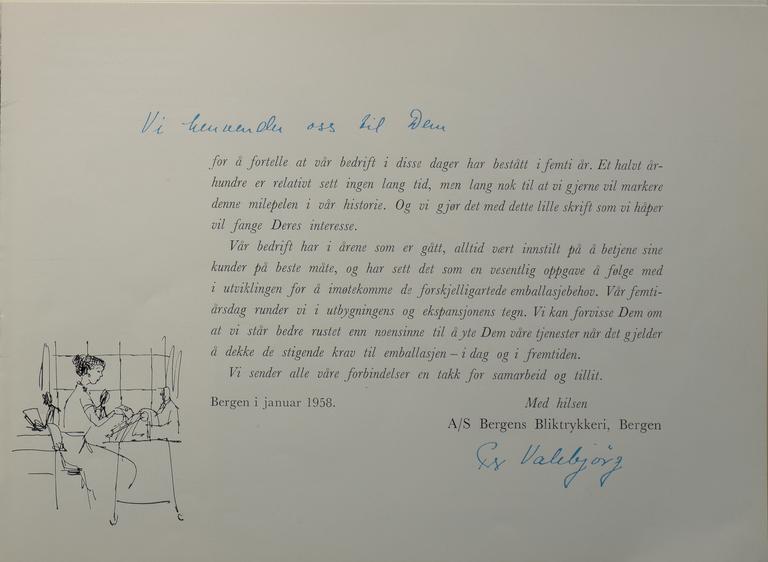 Vi henvender oss til Dem
for å fortelle at vår bedrift i disse dager har bestått i femti år. Et halvt år-
hundre er relativt sett ingen lang tid, men lang nok til at vi gjerne vil markere
denne milepelen i vår historie. Og vi gjør det med dette lille skrift som vi håper
vil fange Deres interesse.
Vår bedrift har i årene som er gått, alltid vært innstilt på å betjene sine
kunder på beste måte, og har sett det som en vesentlig oppgave å følge med
i utviklingen for å imøtekomme de forskjelligartede emballasjebehov. Vår femti-
årsdag runder vi i utbygningens og ekspansjonens tegn. Vi kan forvisse Dem om
at vi står bedre rustet enn noensinne til å yte Dem våre tjenester når det gjelder
å dekke de stigende krav til emballasjen – i dag og i fremtiden.
Vi sender alle våre forbindelser en takk for samarbeid og tillit.
Bergen i januar 1958.
Med hilsen
A/S Bergens Bliktrykkeri, Bergen
Valebjörg